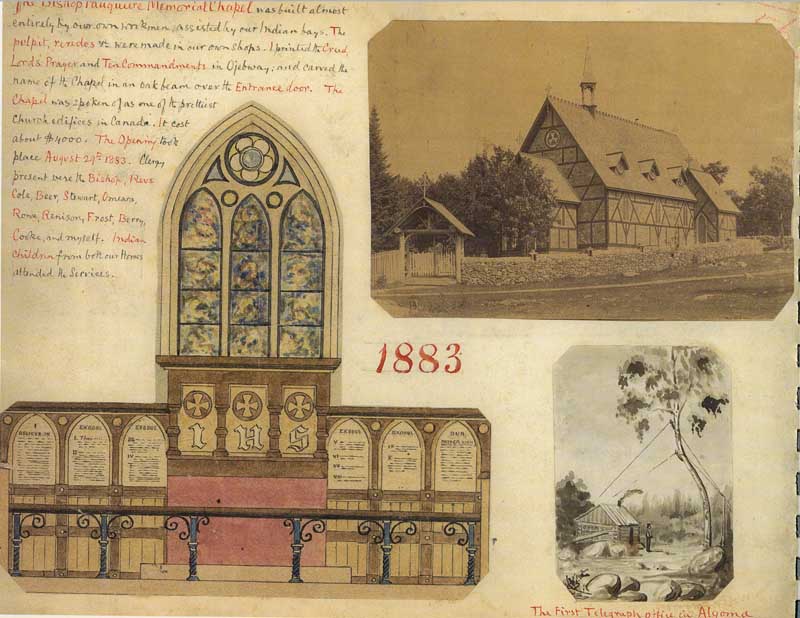 The Bishop Fauquier Memorial Chapel was built almost
entirely by our own workmen, assisted by our Indian boys. The
pulpit, reredos &c were made in our own shops. I printed the Creed,
Lord's Prayer and Ten Commandments in Ojebway; and carved the
name of the Chapel in an oak beam over the Entrance door. The
Chapel was spoken of as one of the prettiest
Church edifices in Canada. It cost
about $4000. The Opening took
place August 29th 1883. Clergy
present were the Bishop, Revs
Cole, Beer, Stewart, Omeara,
Rowe, Renison, Frost, Berry,
Cooke, and myself. Indian
Children from both our Homes
attended the Services.
1883
I BELIEVE IN
EXODUS
EXODUS
EXODUS
EXODUS
OUR
I H S
The First Telegraph office in Algoma